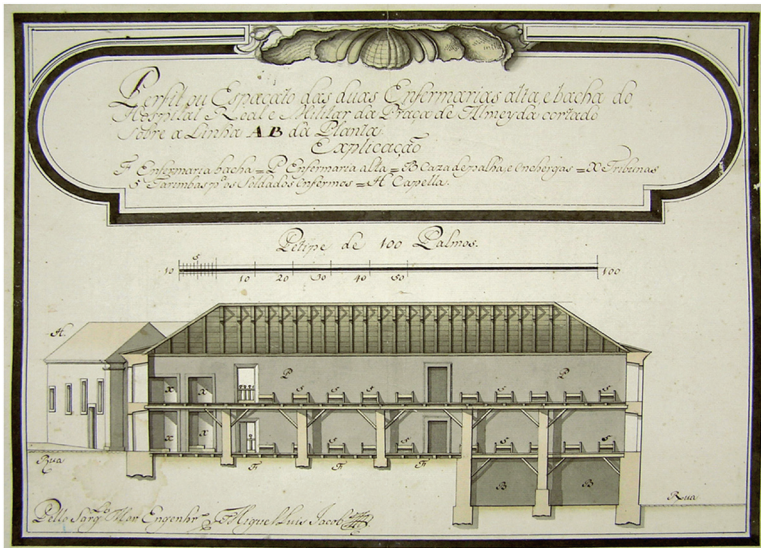 Perfil ou Espacato das duas Enfermarias alta, e bacha do
Hospital Real e Militar da Praça de Almeyda cortado
sobre a Linha AB da Planta.
Explicação
F Enfermaria bacha = P Enfermaria alta = B Caza de palha, e enchergas = X Tribunas
5 Tarimbas pª os Soldados Enfermos = H Capella.
Petipe de 100 Palmos.
5
10 10 20 30 40 50 100
H
P P
X X 5 5 5 5 5 5 5
X X 5 5 5 5 5
Rua F F F
B B
Rua
Pello Sargto Mor Engenhro Miguel Luis Jacob